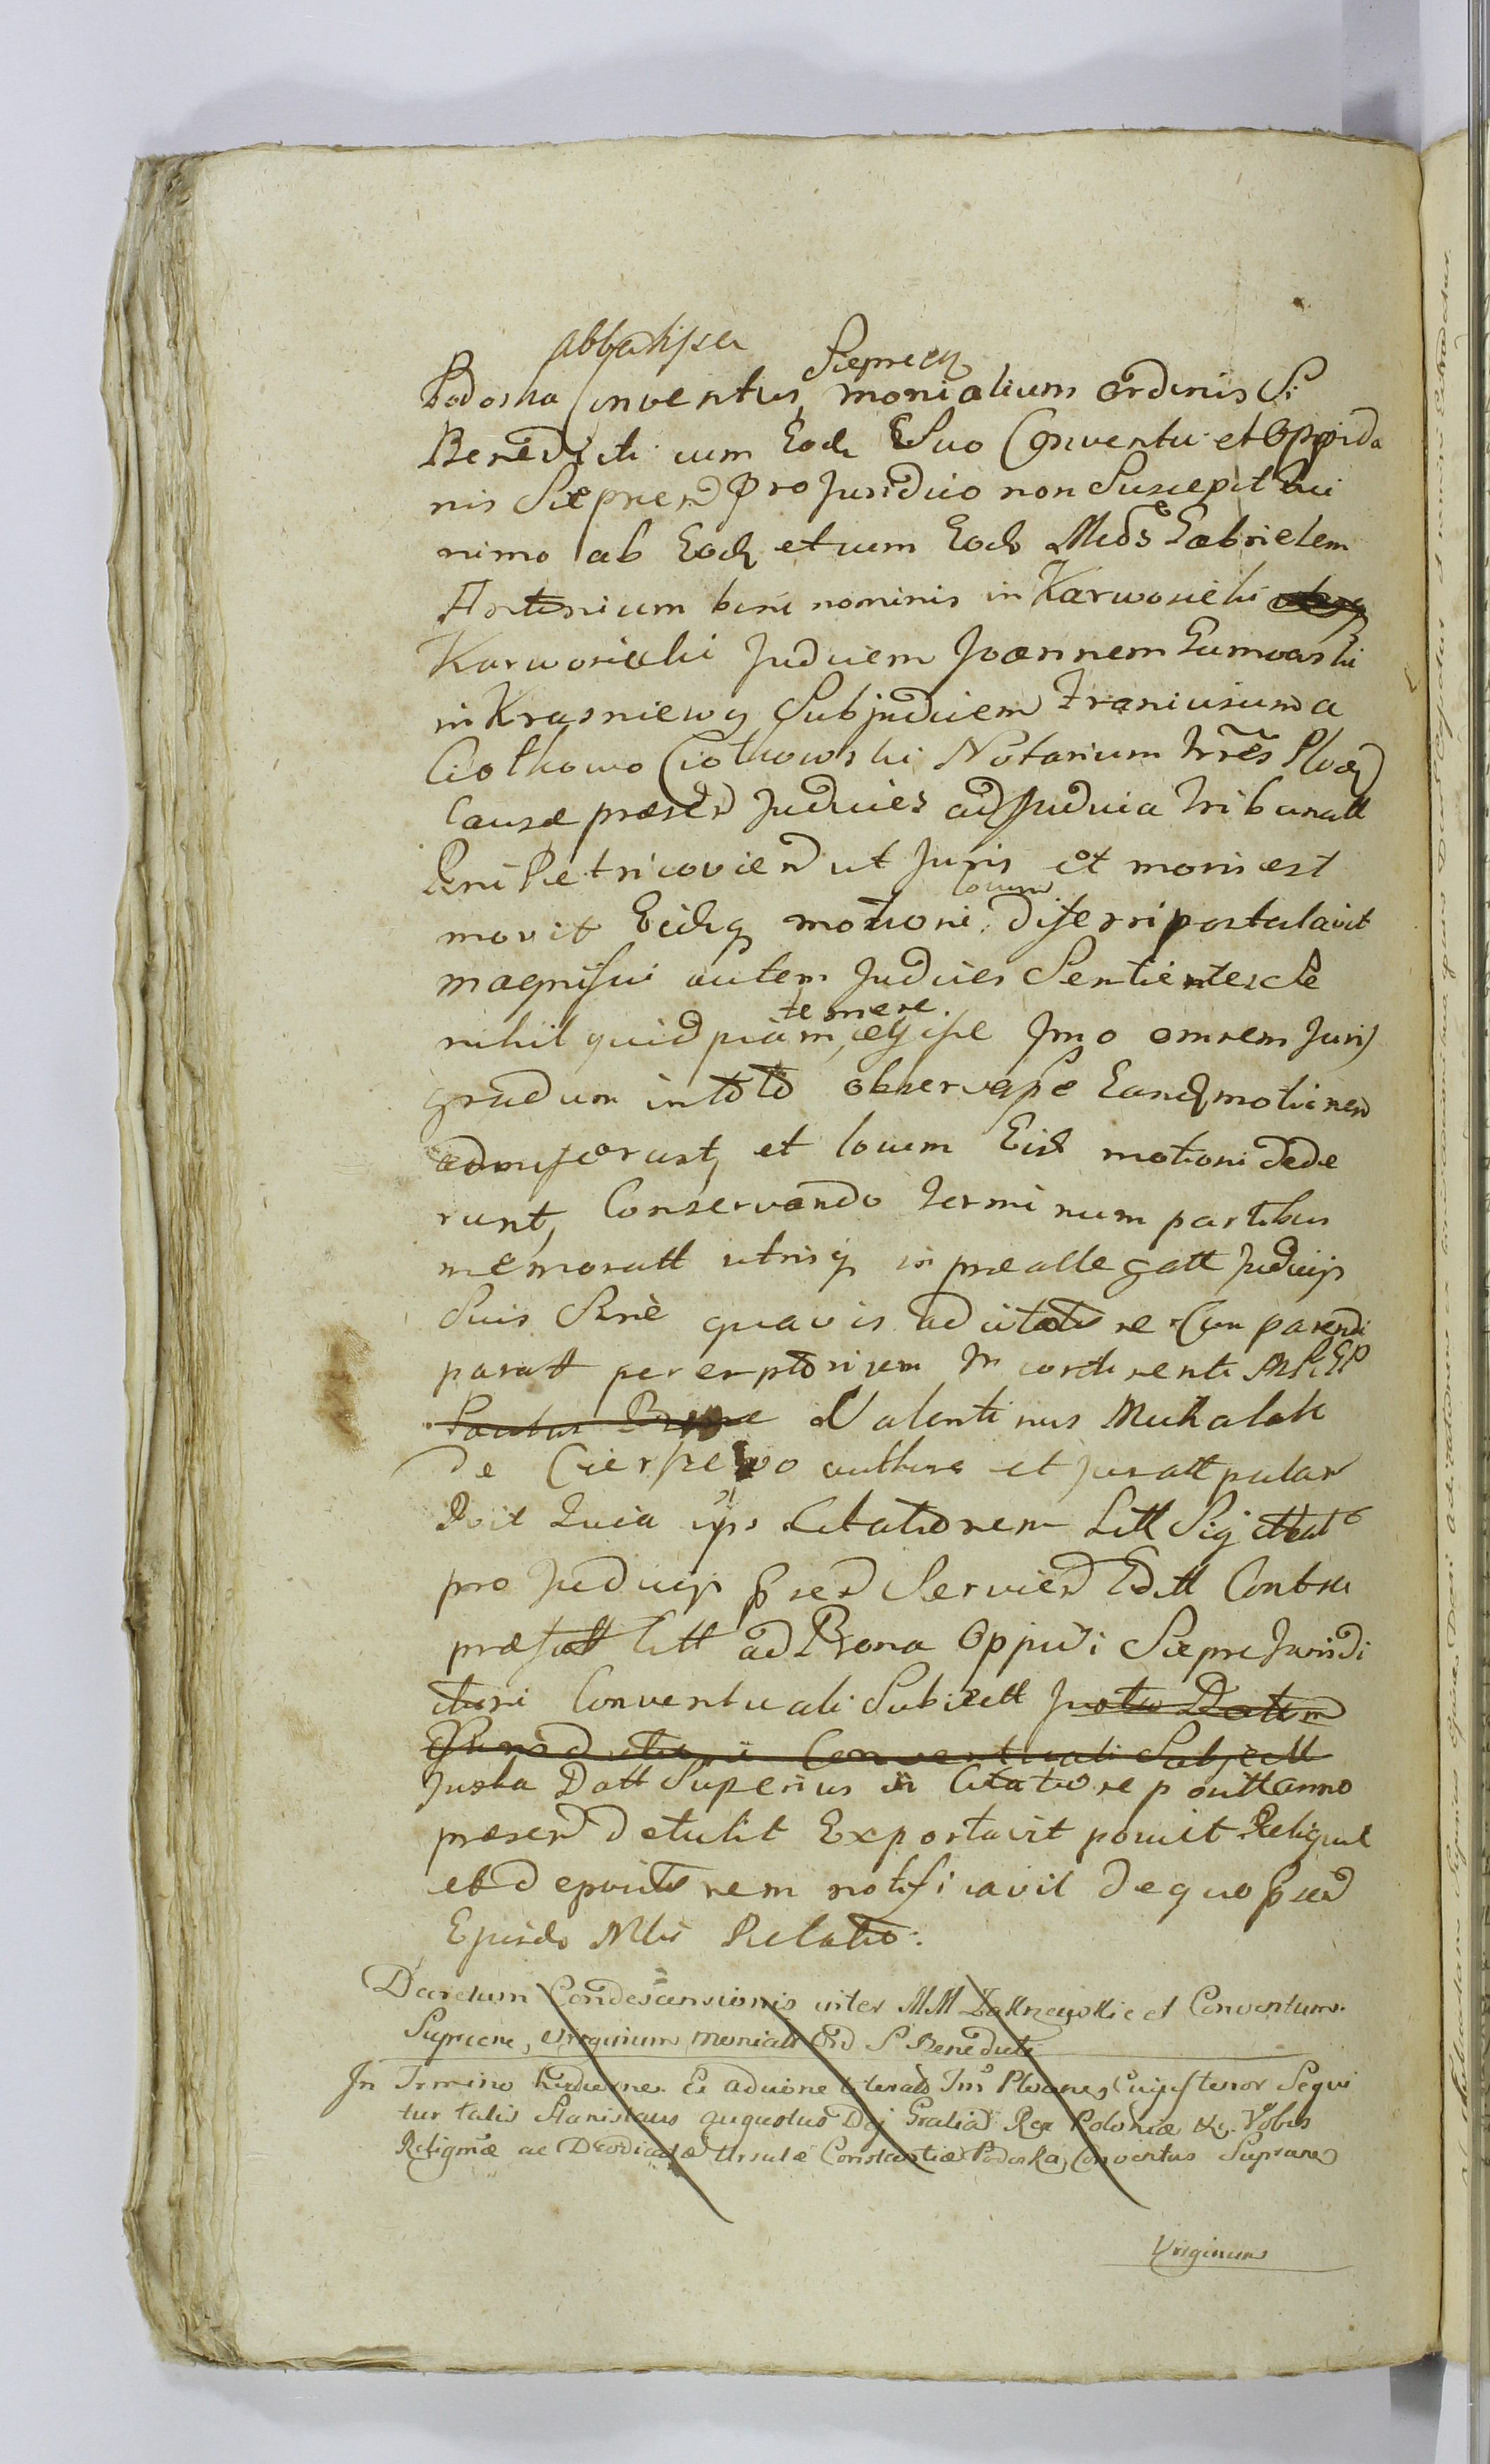 abbatissa Sieprecen
Podoska Conventus monialium ordinis S:
Benedicti cum Eod Suo Conventu et Oppida
nis Sieprcen pro Juridico non Suscepit qui
nimo ab Eod et cum Eod Mcos Gabrielem
Antonium bini nominis in Karwosieki
Karwosieki Judicem Joannem Gumowski
in Krasniewy Subjudicem Franciscum a
Ciołkowo Ciołkowski Notarium Trres Ploc
Causæ præsen Judices ad Judicia Tribunall
Rni Petricovien ut Juris et moris est
movit Eidq motioni locum diferri postulavit
magnifici autem Judices Sentientes se
nihil quidpiam temere egisse Jmo omnem Juris
gradum in toto observasse Eand motionem
admiserunt et locum Eid motioni dede
runt, Conservando terminum partibus
memoratt utrisq in præallegatt Judicijs
Suis Sine quavis adcitatione Comparendi
paratt peremptorium In continenti
Valentinus Michalak
de Cierszewo authen et juratt palam
Quia ips Citationem Litt
pro Judicijs psen Servien Editt Contra
præfatt Citt ad Bona Oppidi Siepre Jurisdi
ctioni Conventuali Subiectt Juxta Dattm
Jurisdictioni Conventuali Subjectt
Juxta Datt Superius in Citatione positt anno
præsen detulit Exportavit posuit Reliquit
et depositionem notificavit de quo psen
Ejusde Mlis Relatio.
Decretum Condescensionis inter MM Zakrzewskie et Conventum
Sieprcene, Virginum monialt Ord S Benedicti
In Termino hodierne Ex adcitne literali Trs Plocnes Cujus tenor Sequi
tur talis Stanislaus Augustus Dej Gratia Rex Poloniæ &c. Vobis
Religiosæ ac Deodicatæ Ursulæ Constantiæ Podoska Conventus Sieprcnes
Virginum